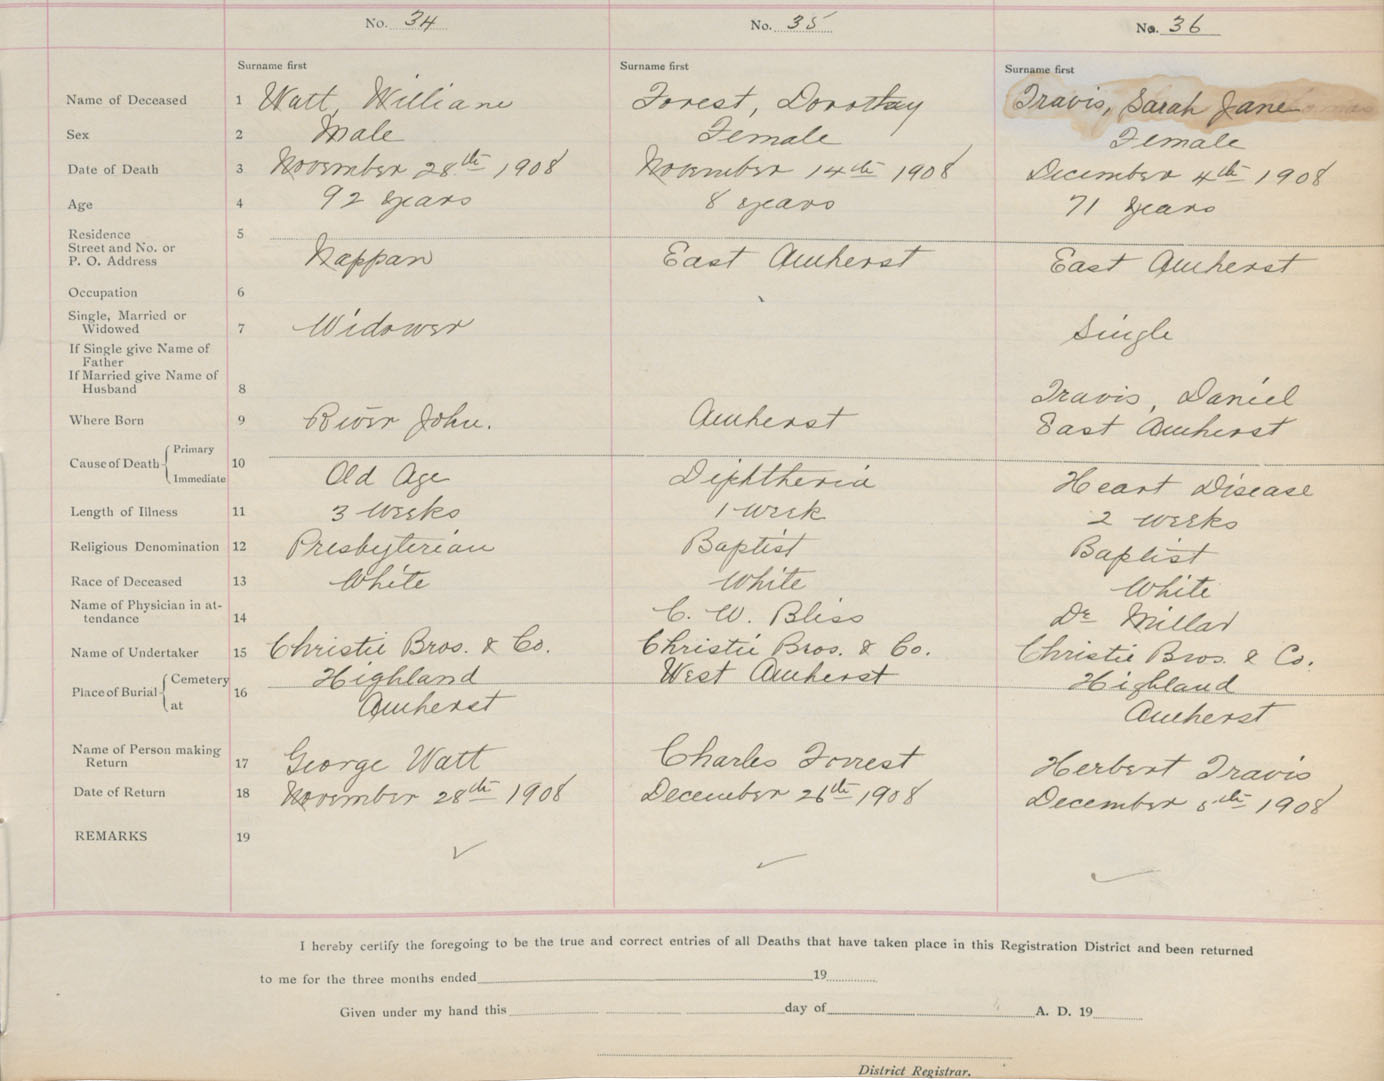 No. 34 No. 35 No. 36
Surname first Surname first Surname first
Name of Deceased 1 Watt, William Forest, Dorothy Travis, Sarah Jane
Sex 2 Male Female Female
Date of Death 3 November 28th 1908 November 14th 1908 December 4th 1908
Age 4 92 years 8 years 71 years
Residence 5
Street and No. or
P. O. Address Nappan East Amherst East Amherst
Occupation 6
Single, Married or
Widowed 7 Widower Single
If Single give Name of
Father
If Married give Name of
Husband 8 Travis, Daniel
Where Born 9 River John. Amherst East Amherst
Cause of Death Primary
10
Immediate Old Age Diphtheria Heart Disease
Length of Illness 11 3 weeks 1 week 2 weeks
Religious Denomination 12 Presbyterian Baptist Baptist
Race of Deceased 13 White White White
Name of Physician in at-
tendance 14 C. W. Bliss Dr Millar
Name of Undertaker 15 Christie Bros. & Co. Christie Bros. & Co. Christie Bros. & Co.
Place of Burial Cemetery 16 Highland West Amherst Highland
at Amherst Amherst
Name of Person making
Return 17 George Watt Charles Forrest Herbert Travis
Date of Return 18 November 28th 1908 December 26th 1908 December 5th 1908
REMARKS 19
I hereby certify the foregoing to be the true and correct entries of all Deaths that have taken place in this Registration District and been returned
to me for the three months ended 19
Given under my hand this day of A. D. 19
District Registrar.